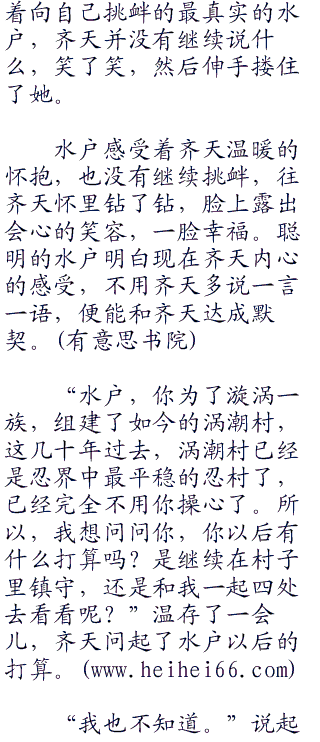 着向自己挑衅的最真实的水
户，齐天并没有继续说什
么，笑了笑，然后伸手搂住
了她。
水户感受着齐天温暖的
怀抱，也没有继续挑衅，往
齐天怀里钻了钻，脸上露出
会心的笑容，一脸幸福。聪
明的水户明白现在齐天内心
的感受，不用齐天多说一言
一语，便能和齐天达成默
契。(有意思书院)
“水户，你为了漩涡一
族，组建了如今的涡潮村，
这几十年过去，涡潮村已经
是忍界中最平稳的忍村了，
已经完全不用你操心了。所
以，我想问问你，你以后有
什么打算吗？是继续在村子
里镇守，还是和我一起四处
去看看呢？”温存了一会
儿，齐天问起了水户以后的
打算。(www.heihei66.com)
“我也不知道。”说起